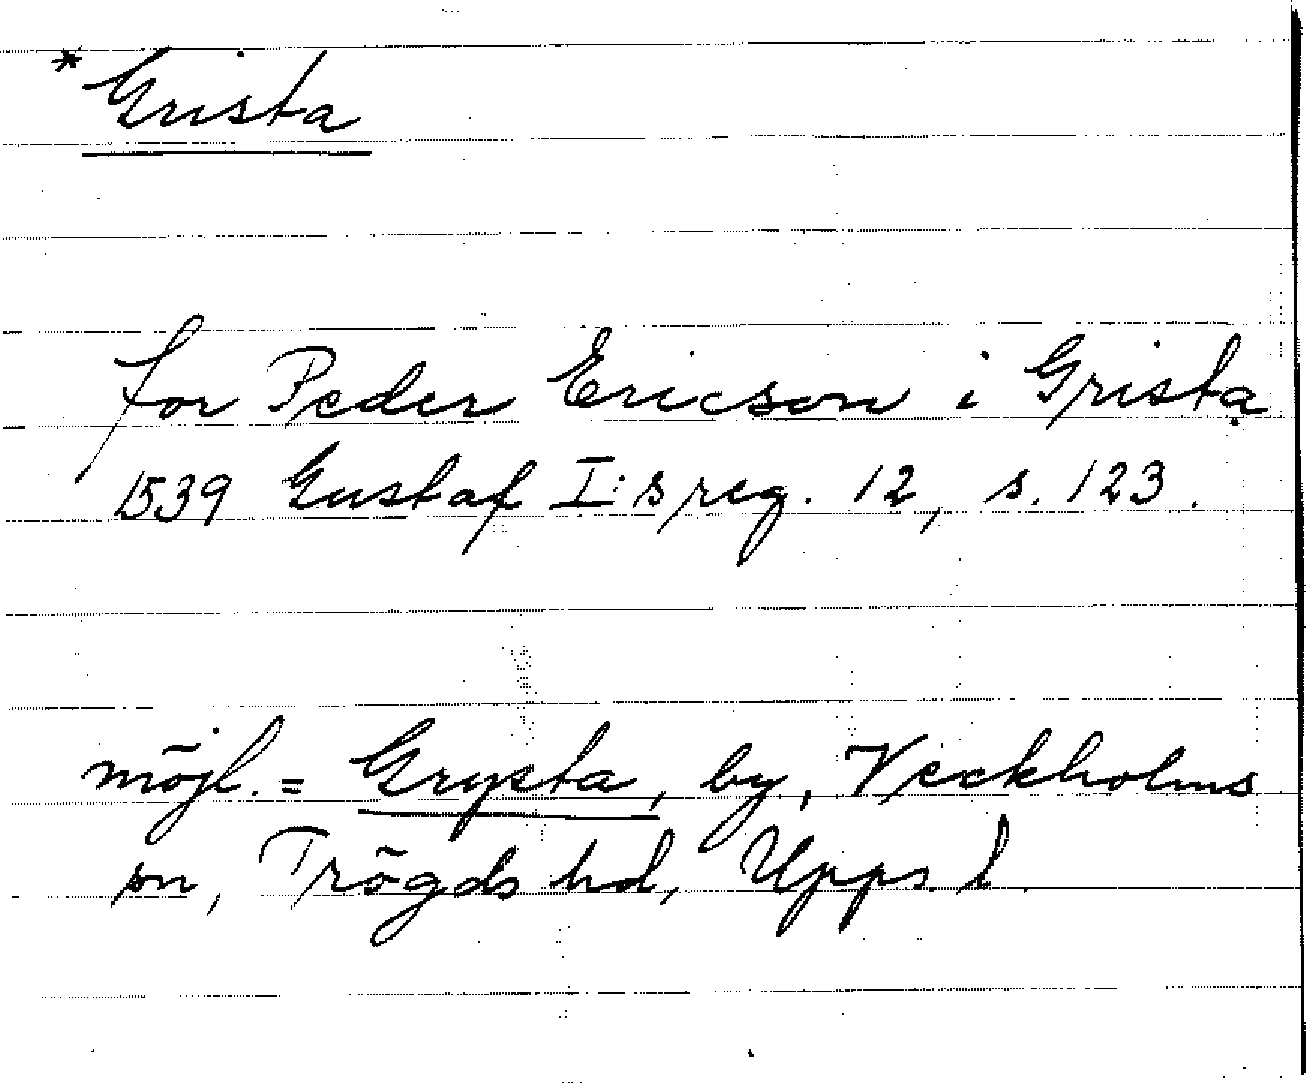 *Grista
for Peder Ericson i Grista
1539 Gustaf I:s reg. 12, s. 123.
möjl. = Grysta, by, Veckholms
sn, Trögds hd, Upps. l.